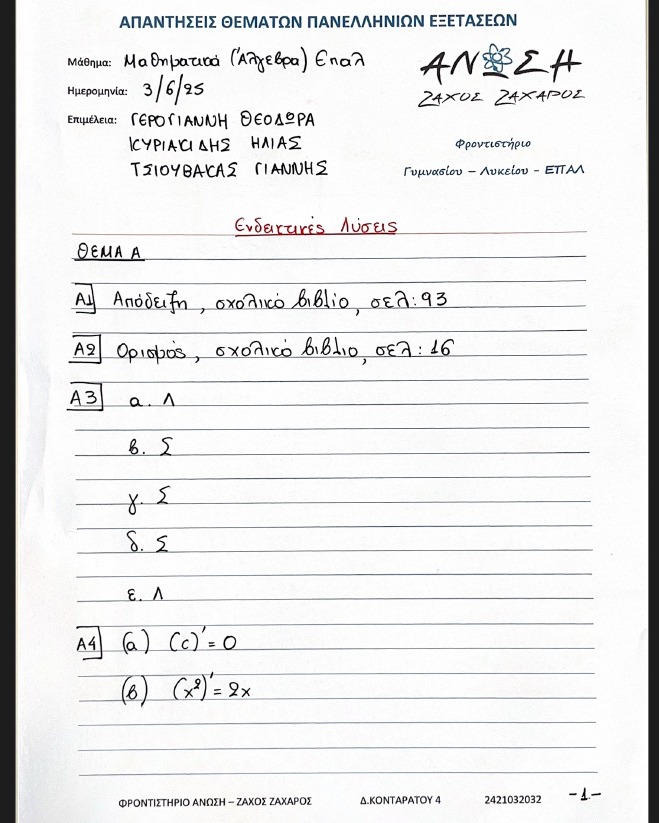 ΑΠΑΝΤΗΣΕΙΣ ΘΕΜΑΤΩΝ ΠΑΝΕΛΛΗΝΙΩΝ ΕΞΕΤΑΣΕΩΝ
Μάθημα: Μαθηματικά (Άλγεβρα) Επαλ
Ημερομηνία: 3/6/25
Επιμέλεια: ΓΕΡΟΓΙΑΝΝΗ ΘΕΟΔΩΡΑ
ΚΥΡΙΑΚΙΔΗΣ ΗΛΙΑΣ
ΤΣΙΟΥΒΑΚΑΣ ΓΙΑΝΝΗΣ
ΑΝΩΣΗ
ΖΑΧΟΣ ΖΑΧΑΡΟΣ
Φροντιστήριο
Γυμνασίου – Λυκείου - ΕΠΑΛ
Ενδεικτικές Λύσεις
ΘΕΜΑ Α
Α1 Απόδειξη, σχολικό βιβλίο, σελ: 93
Α2 Ορισμός, σχολικό βιβλίο, σελ: 16
Α3 α. Λ
β. Σ
γ. Σ
δ. Σ
ε. Λ
Α4 (α) (c)' = 0
(β) (x²)' = 2x
ΦΡΟΝΤΙΣΤΗΡΙΟ ΑΝΩΣΗ – ΖΑΧΟΣ ΖΑΧΑΡΟΣ Δ.ΚΟΝΤΑΡΑΤΟΥ 4 2421032032 -1-